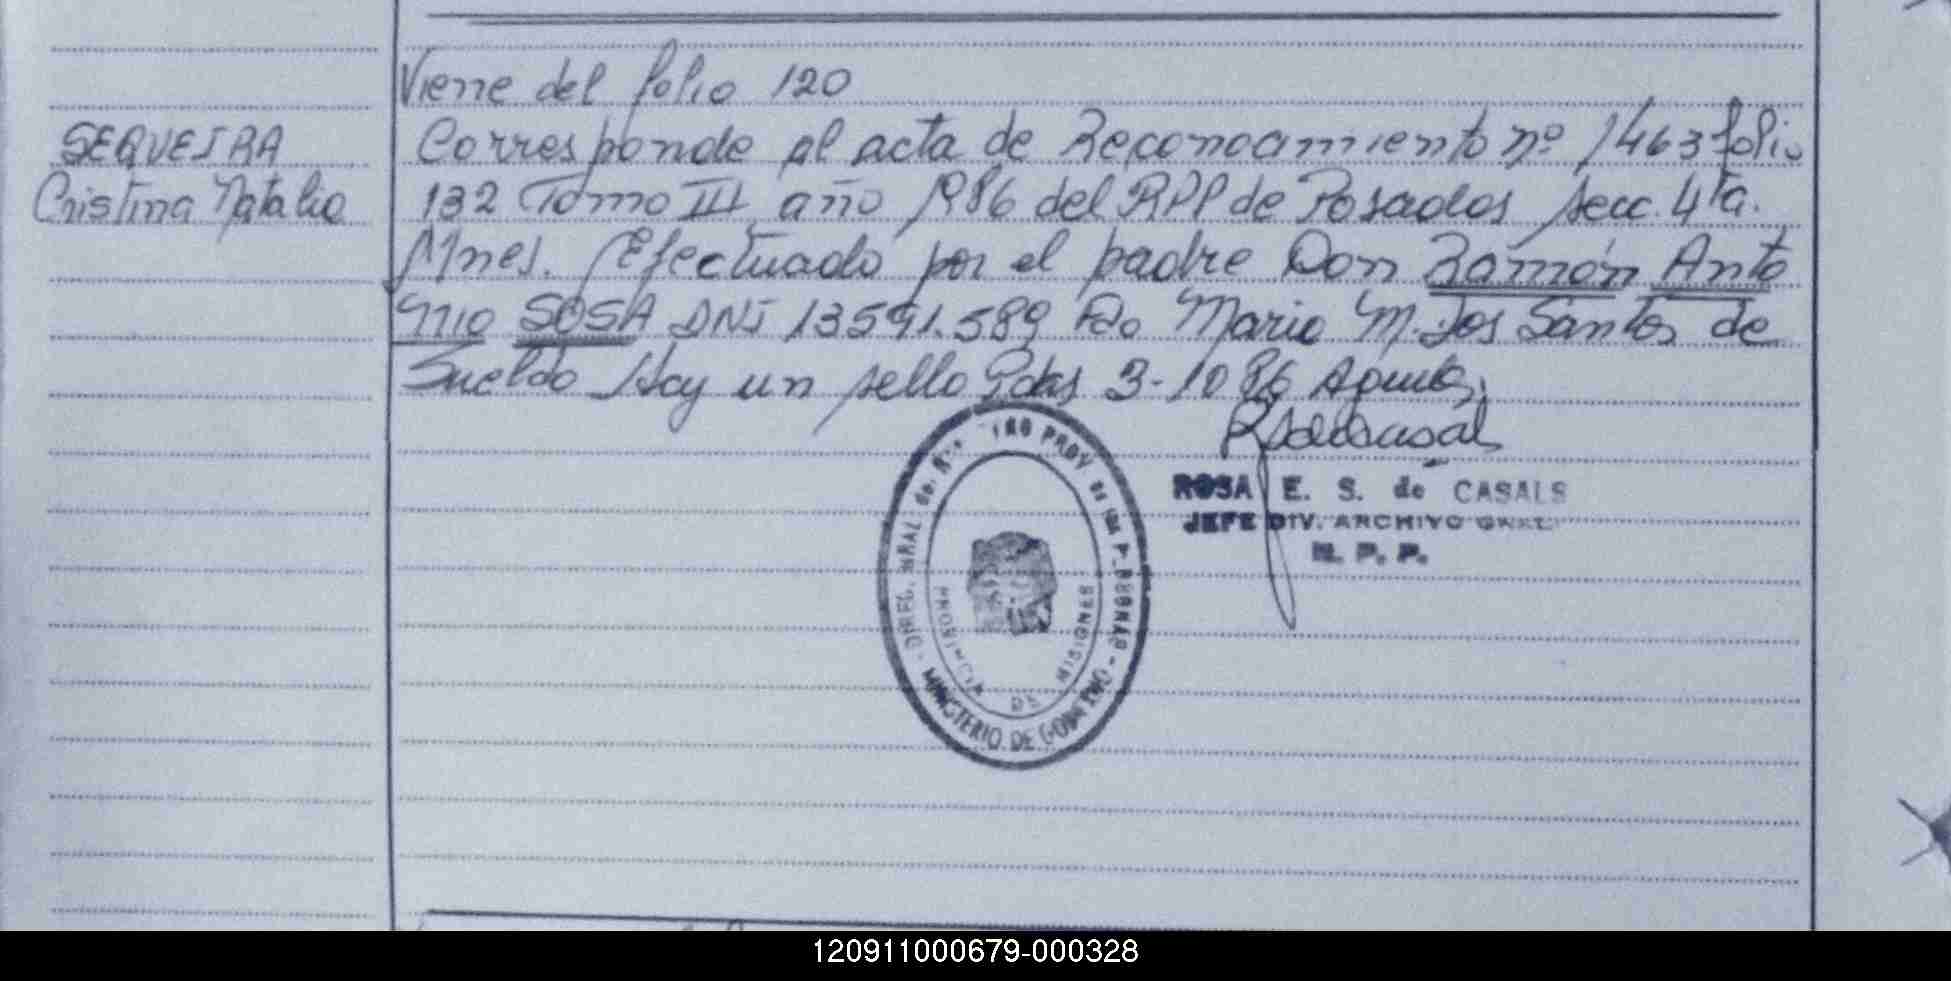 Viene del folio 120
SEQUEIRA
Cristina Natalia
Corresponde al acta de Reconocimiento nº 1463 folio
132 Tomo III año 1986 del RPP de Posadas secc. 4ta.
Mnes. Efectuado por el padre Don Ramón Anto
nio SOSA DNI 13591.589 Fdo Maria M. Dos Santos de
Sueldo Hay un sello Pdas 3-10 86
ROSA E. S. de CASALS
JEFE DIV. ARCHIVO GRAL
R. P. P.
PROVINCIA DE MISIONES
MINISTERIO DE GOBIERNO
120911000679-000328